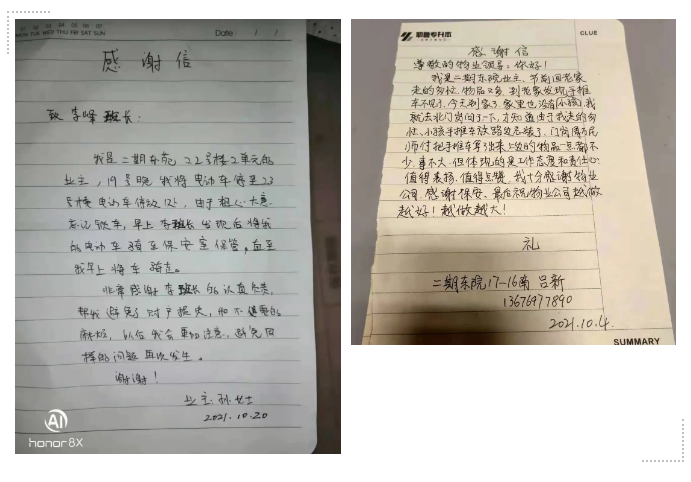 MON TUE WED THU FRI SAT SUN
Date / /
感谢信
致李峰班长：
我是二期东苑22号楼2单元的
业主，19号晚我将电动车停至23
号楼电动车停放处，由于粗心大意
忘记锁车，早上李班长发现后将我
的电动车骑至保安室保管，直至
我早上将车骑走。
非常感谢李班长的认真负责，
帮我避免了财产损失，和不必要的
麻烦，以后我会更加注意，避免同
样的问题再次发生。
谢谢！
业主：孙女士
2021.10.20
AI
honor 8X
专升本
CLUE
感谢信
尊敬的物业领导：你好！
我是二期东院业主，节前回老家
走的匆忙，物品又多，到老家发现手推
车不见了，今天到家了，家里也没有(小孩)，我
就去北门岗问了一下，才知道由于我走的匆
忙，小孩手推车放路边忘装了，门岗傅
师付把手推车拿出来上边的物品一点都不
少，事不大，但体现的是工作态度和责任心
值得表扬，值得点赞，我十分感谢物业
公司，感谢保安、最后祝物业公司越做
越好！越做越大！
礼
二期东院17-16南 吕新
13676977890
2021.10.4.
SUMMARY